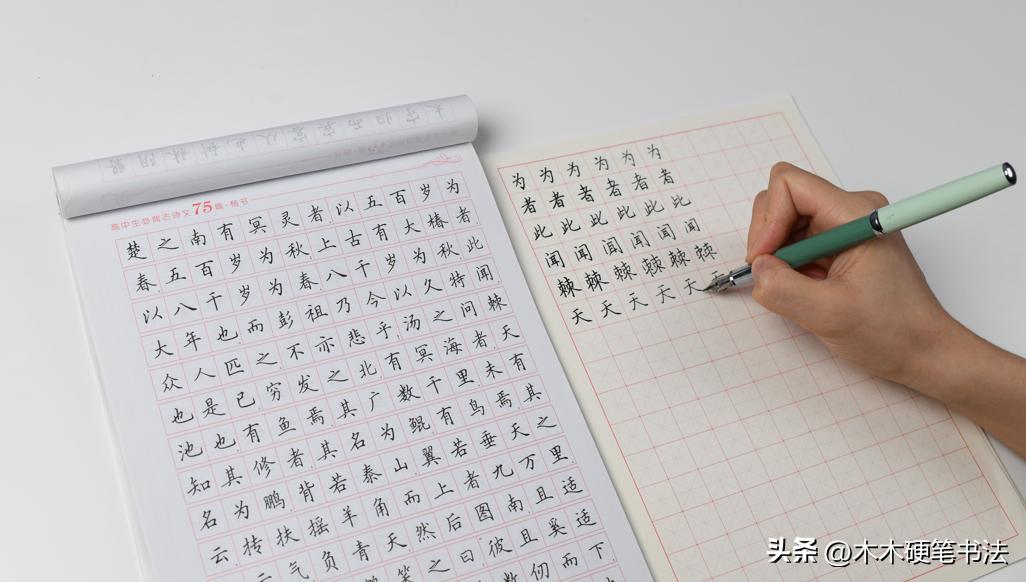 高中生必背古诗文75篇·楷书
楚之南有冥灵者以五百岁为
春五百岁为秋上古有大椿者
以八千岁为春八千岁为秋此
大年也而彭祖乃今以久特闻
众人匹之不亦悲乎汤之问棘
也是已穷发之北有冥海者天
池也有鱼焉其广数千里未有
知其修者其名为鲲有鸟焉其
名为鹏背若泰山翼若垂天之
云抟扶摇羊角而上者九万里
云气负青天然后图南且适
笑之曰彼且奚适
数仞而下
为为为为为为
者者者者者者
此此此此此此
闻闻闻闻闻闻
棘棘棘棘棘棘
天天天天天
头条 @木木硬笔书法